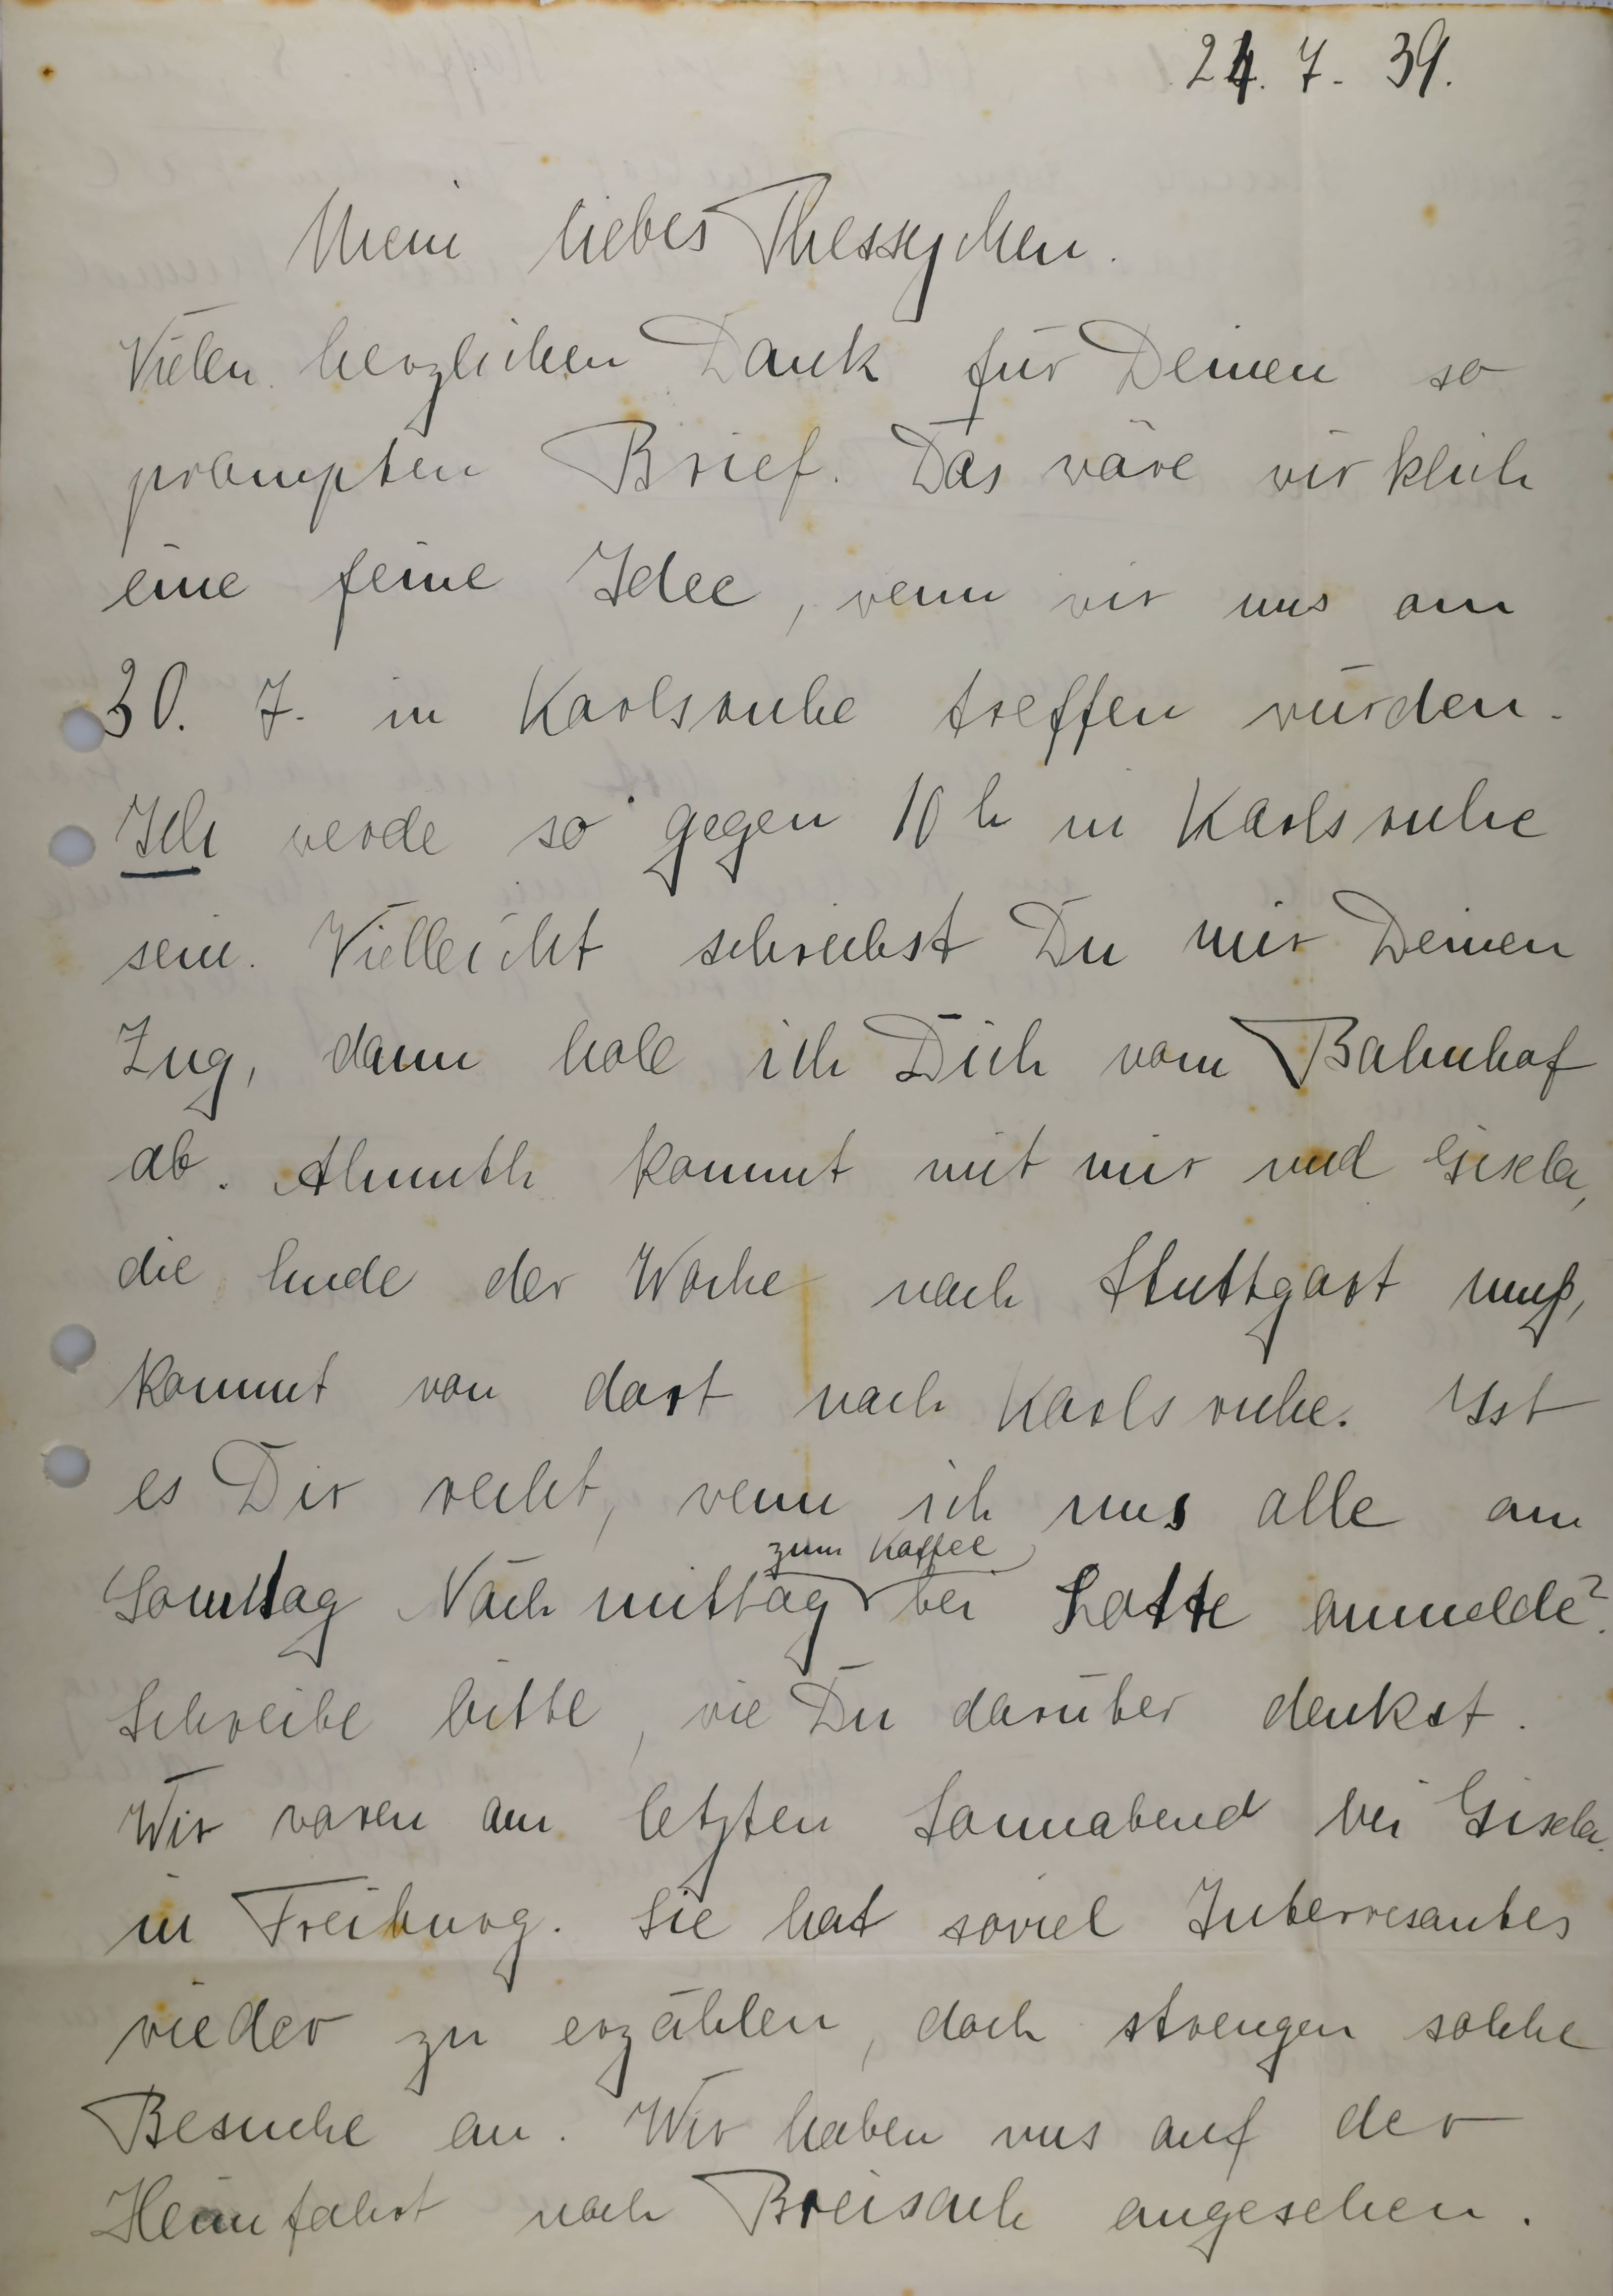 24. 7. 39.
Mein liebes Thessychen.
Vielen herzlichen Dank für Deinen so
prompten Brief. Das wäre wirklich
eine feine Idee, wenn wir uns am
30. 7. in Karlsruhe treffen würden.
Ich werde so gegen 10 h in Karlsruhe
sein. Vielleicht schreibst Du mir Deinen
Zug, dann hole ich Dich vom Bahnhof
ab. Almuth kommt mit mir und Gisela,
die Ende der Woche nach Stuttgart muß,
kommt von dort nach Karlsruhe. Ist
es Dir recht, wenn ich uns alle am
zum Kaffee
Nachmittag bei Lotte anmelde?
Schreibe bitte, wie Du darüber denkst.
Wir waren am letzten Sonnabend bei Gisela
in Freiburg. Sie hat soviel Interresantes
wieder zu erzählen, doch strengen solche
Besuche an. Wir haben uns auf der
Heimfahrt noch Breisach angesehen.